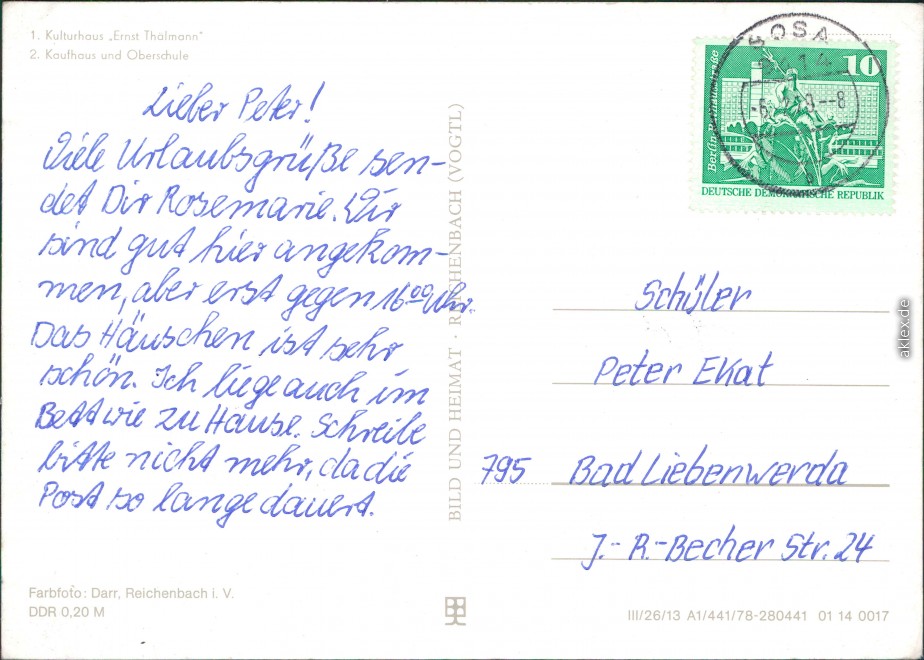 1. Kulturhaus „Ernst Thälmann"
2. Kaufhaus und Oberschule
Lieber Peter!
Viele Urlaubsgrüße sen-
det Dir Rosemarie. Wir
sind gut hier angekom-
men, aber erst gegen 16⁰⁰ Uhr.
Das Häuschen ist sehr
schön. Ich liege auch im
Bett wie zu Hause. Schreibe
bitte nicht mehr, da die
Post so lange dauert.
Farbfoto: Darr, Reichenbach i. V.
DDR 0,20 M
BILD UND HEIMAT · REICHENBACH (VOGTL)
SOSA
9414
10
Berlin-Rathausstraße
DEUTSCHE DEMOKRATISCHE REPUBLIK
Schüler
Peter Ekat
795 Bad Liebenwerda
J.-R.-Becher Str. 24
III/26/13 A1/441/78-280441 01 14 0017
aklex.de